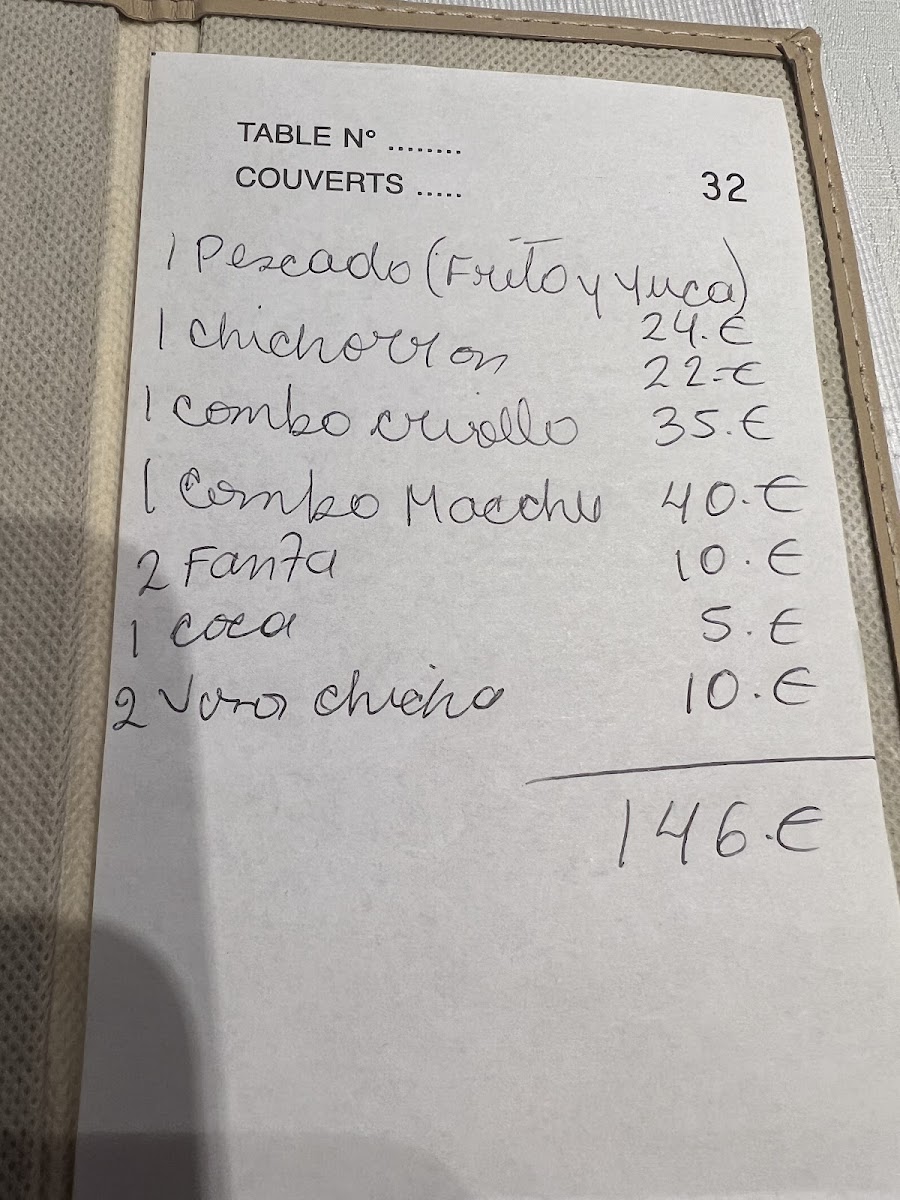 TABLE N° ........
COUVERTS ..... 32
1 Pescado (Frito y Yuca)
24.€
1 chichorron 22.-€
1 combo criollo 35.€
1 Combo Macchu 40.€
2 Fanta 10.€
1 coca 5.€
2 Vaso chicha 10.€
146.€